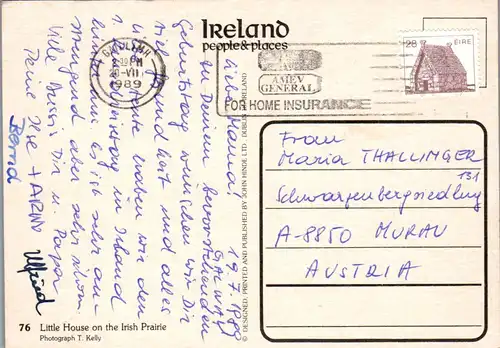 Ireland
people & places
GAILLIMH
20 VII
1989
AMEV
GENERAL
FOR HOME INSURANCE
28 ÉIRE
Galway
19.7.1989
Liebe Mama!
Zu Deinem bevorstehenden
Geburtstag wünschen wir Dir
viel Gesundheit und alles
Heute haben wir den
in Irland
hinter uns. Es ist sehr an-
strengend aber sehr schön.
Viele Bussis Dir u. Papa
Deine Ilse +
Bernd
Frau
Maria THALLINGER
Schwarzenbergsiedlung
131
A-8850 MURAU
AUSTRIA
© DESIGNED, PRINTED AND PUBLISHED BY JOHN HINDE LTD. DUBLIN IRELAND
76 Little House on the Irish Prairie
Photograph T. Kelly